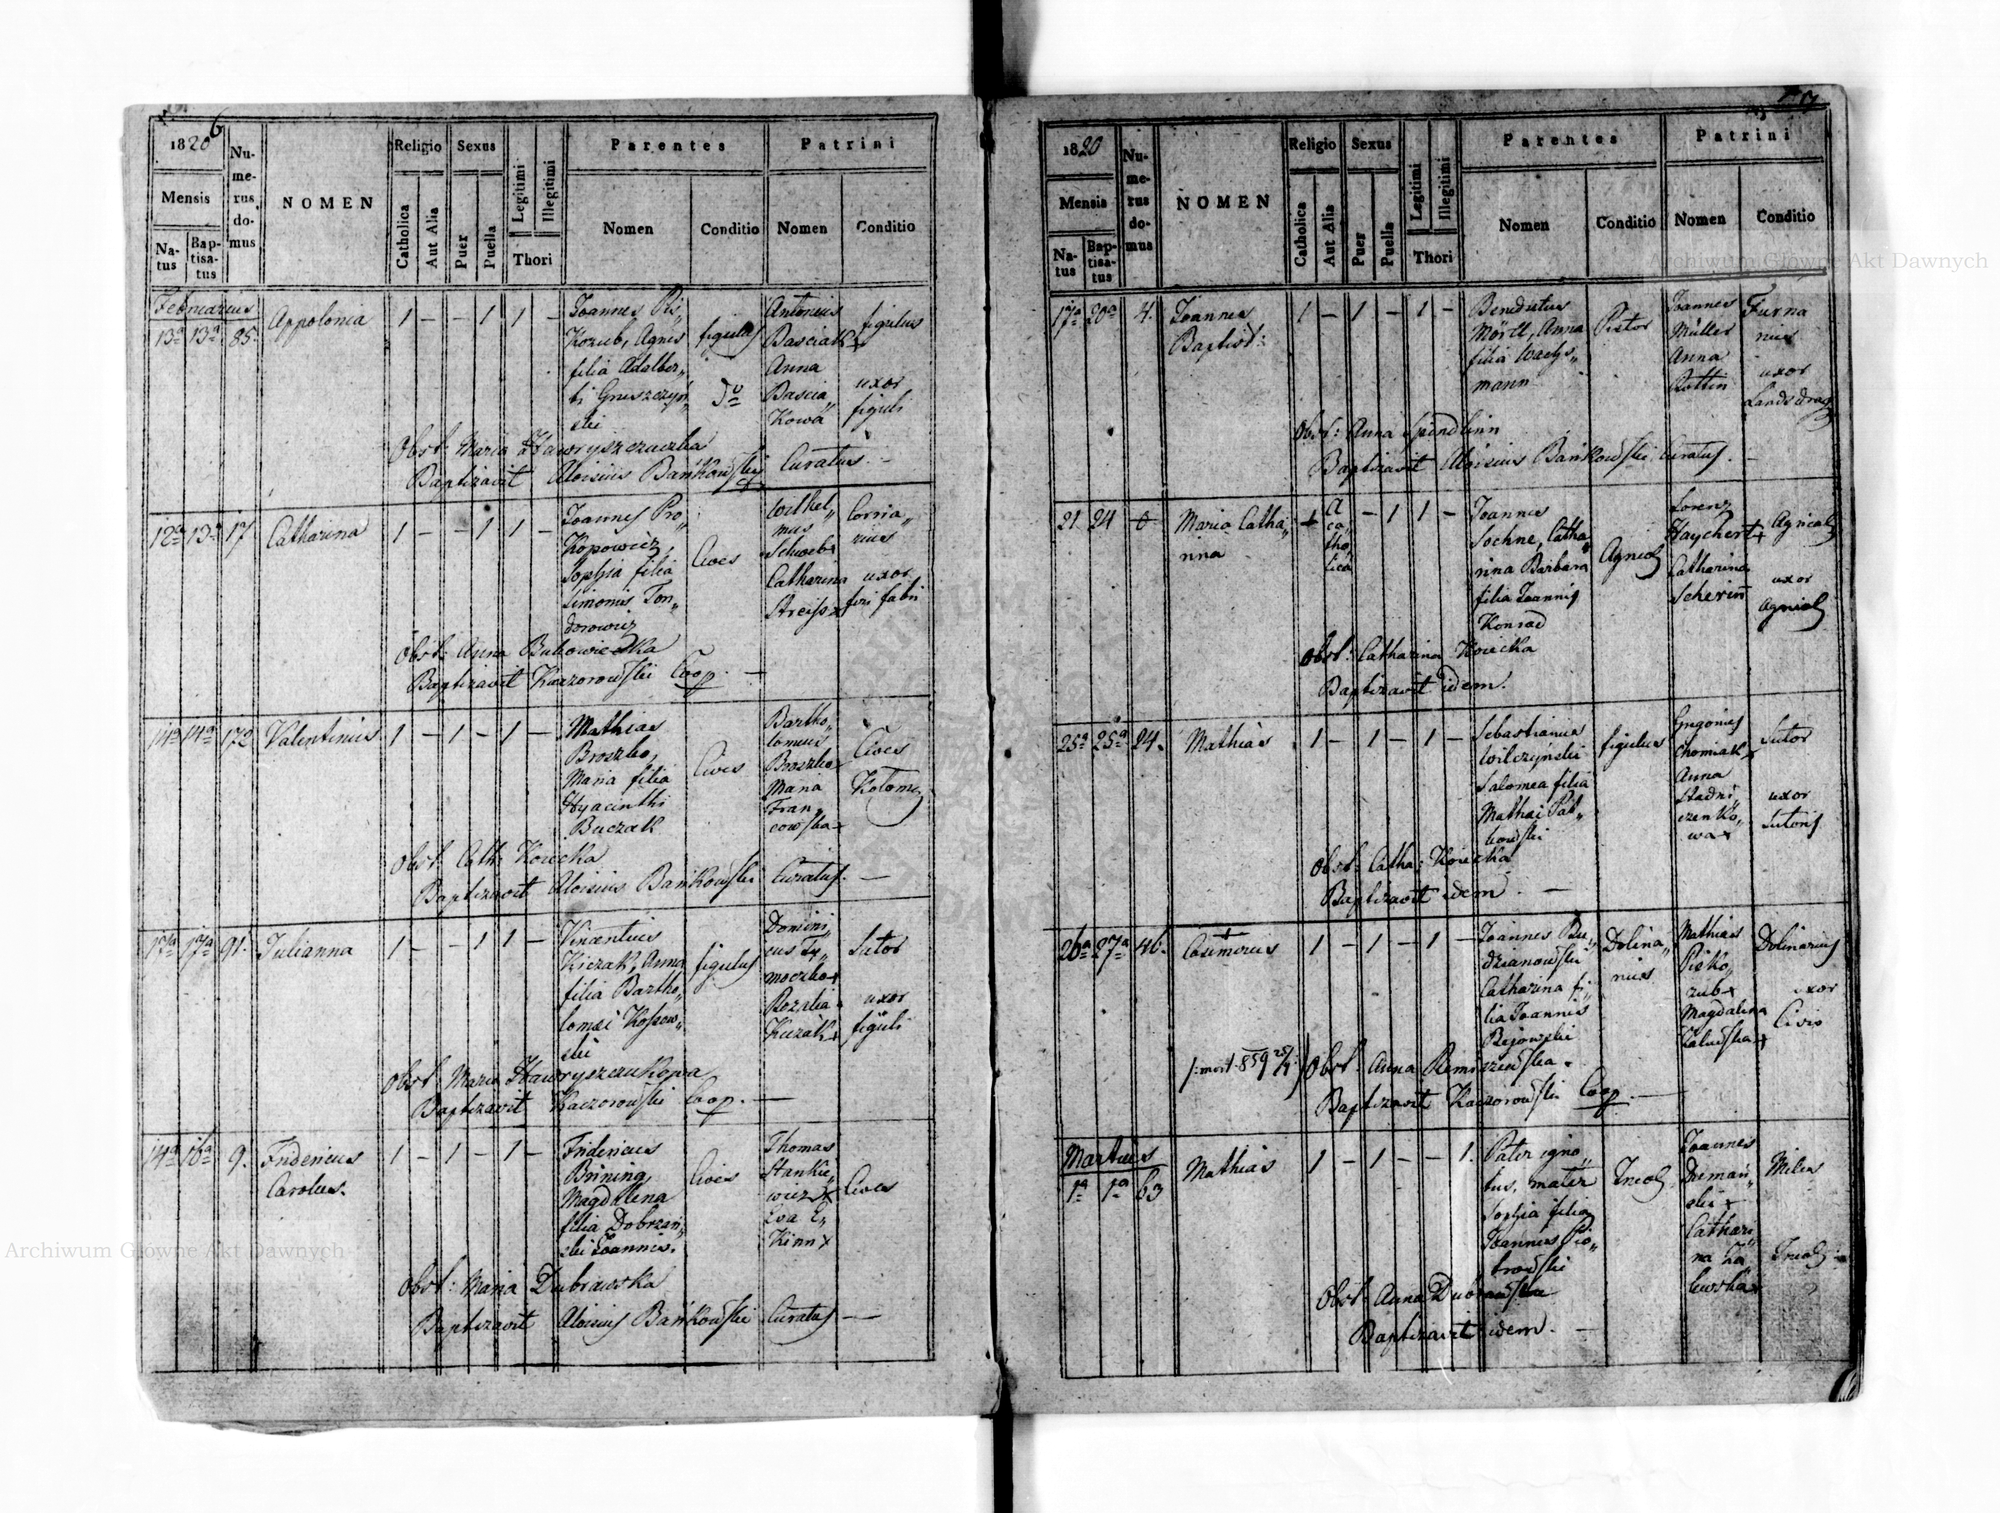 6
1820
Nu-
me-
rus
do-
mus
NOMEN
Religio
Sexus
Legitimi
Illegitimi
Parentes
Patrini
Mensis
Catholica
Aut Alia
Puer
Puella
Nomen
Conditio
Nomen
Conditio
Na-
tus
Bap-
tisa-
tus
Thori
Februarius
13a 13a 85.
Appolonia
1 — — 1 1 —
Joannes Pis„
Kozub, Agnes
filia Adalber„
ti Gruszczyń„
ski
figulus
Do
Antonius
Basciak x
Anna
Bascia„
Kowa
figulus
uxor
figuli
Obst. Maria Hawryszczaczka
Baptizavit Aloisius Bańkowski Curatus. —
12a 13a 17
Catharina
1 — — 1 1 —
Joannes Pro„
Kopowicz,
Sophia filia
Simonis Ton„
dorowicz
Cives
Wilhel„
mus
Schoeb x
Catharina
Streiss x
uxor
Obst: Anna Bukowiecka
Baptizavit Kaczorowski Coop. —
14a 14a 172
Valentinus
1 — 1 — 1 —
Mathias
Broszko,
Maria filia
Hyacinthi
Buczak
Cives
Bartho„
lomeus
Broszko
Maria
Fran„
cowska x
Cives
Kolom
Obst. Cath: Kosecka
Baptizavit Aloisius Bańkowski Curatus. —
17a 17a 91.
Julianna
1 — — 1 1 —
Vincentius
Kiczak, Anna
filia Bartho„
lomei Kossow„
ski
figulus
Domini„
cus Ty„
moczko x
Rozalia
Kuzak x
Sutor
uxor
figuli
Obst. Maria Hawryszczukowa
Baptizavit Kaczorowski Coop. —
14a 16a 9.
Fridericus
Carolus.
1 — 1 — 1 —
Fridericus
Brining,
Magdalena
filia Dobrzań„
ski Joannis.
Cives
Thomas
Stankie„
wicz x
Eva E„
Kinn x
Cives
Obst: Maria Dubrawska
Baptizavit Aloisius Bańkowski Curatus —
1820
Nu-
me-
rus
do-
mus
NOMEN
Religio
Sexus
Legitimi
Illegitimi
Parentes
Patrini
Mensis
Catholica
Aut Alia
Puer
Puella
Nomen
Conditio
Nomen
Conditio
Na-
tus
Bap-
tisa-
tus
Thori
17a 20a 4.
Joannes
Baptist:
1 — 1 — 1 —
Benedictus
Mörtl, Anna
filia Waels„
mann
Pistor
Joannes
Müller
Anna
Rottin
Furna
rius
uxor
Obst: Anna Spindlinn
Baptizavit Aloisius Bańkowski Curatus. —
21 24 0
Maria Catha„
rina
A
ca„
tho„
lica
— 1 1 —
Joannes
Sochne, Catha„
rina Barbara
filia Joannis
Konrad
Agricol
Lorenz
Haychert x
Catharina
Scherin
Agricol
uxor
Agricol
Obst: Catharina Kosecka
Baptizavit idem.
25a 25a 24.
Mathias
1 — 1 — 1 —
Sebastianus
Wilczyński
Salomea filia
Mathei Pat„
kowski
figulus
Gregorius
Chomiak x
Anna
Stadni
czenko„
wa x
Sutor
uxor
Sutoris
Obst: Catha: Kosecka
Baptizavit idem. —
26a 27a 46.
Casimirus
1 — 1 — 1 —
Joannes Bu„
dzianowski
Catharina fi„
lia Joannis
Bejowski
Dolina„
rius
Mathias
Pisko„
zub x
Magdalena
Zaleska x
Dolinarius
uxor
Civis
Obst. Anna Remiszewska.
Baptizavit Kaczorowski Coop. —
Martius
1a 1a 63
Mathias
1 — 1 — — 1.
Pater igno„
tus, mater
Sophia filia
Joannis Pio„
trowski
Incol
Joannes
Duman„
ski x
Cathari„
na Za„
lewska x
Miles
Incol
Obst. Anna Dubrawska
Baptizavit idem. —
Archiwum Główne Akt Dawnych
Archiwum Główne Akt Dawnych